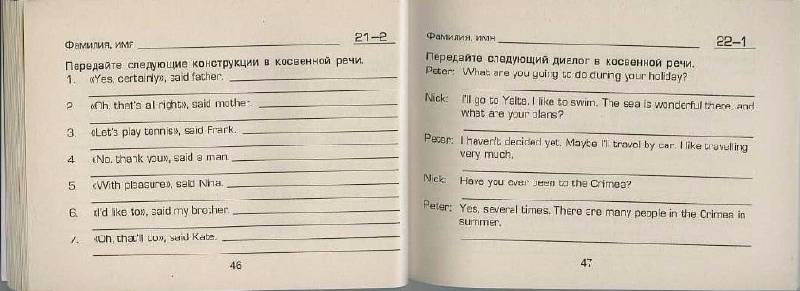 Фамилия, имя 21–2
Передайте следующие конструкции в косвенной речи.
1. «Yes, certainly», said father.
2. «Oh, that's all right», said mother.
3. «Let's play tennis», said Frank.
4. «No, thank you», said a man.
5. «With pleasure», said Nina.
6. «I'd like to», said my brother.
7. «Oh, that'll do», said Kate.
46
Фамилия, имя 22–1
Передайте следующий диалог в косвенной речи.
Peter: What are you going to do during your holiday?
Nick: I'll go to Yalta. I like to swim. The sea is wonderful there, and
what are your plans?
Peter: I haven't decided yet. Maybe I'll travel by car. I like travelling
very much.
Nick: Have you ever been to the Crimea?
Peter: Yes, several times. There are many people in the Crimea in
summer.
47